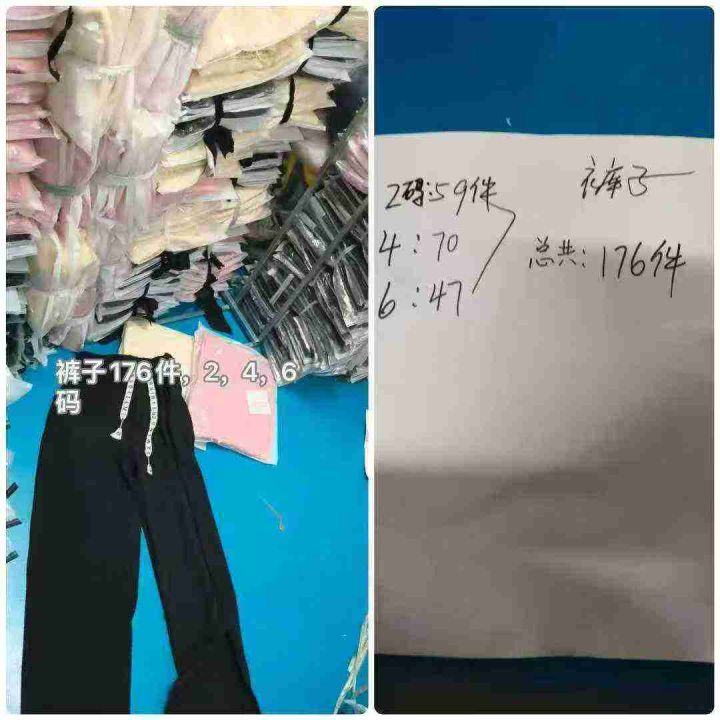 裤子176件，2，4，6
码
2码:59件
4:70
6:47
裤子
总共:176件